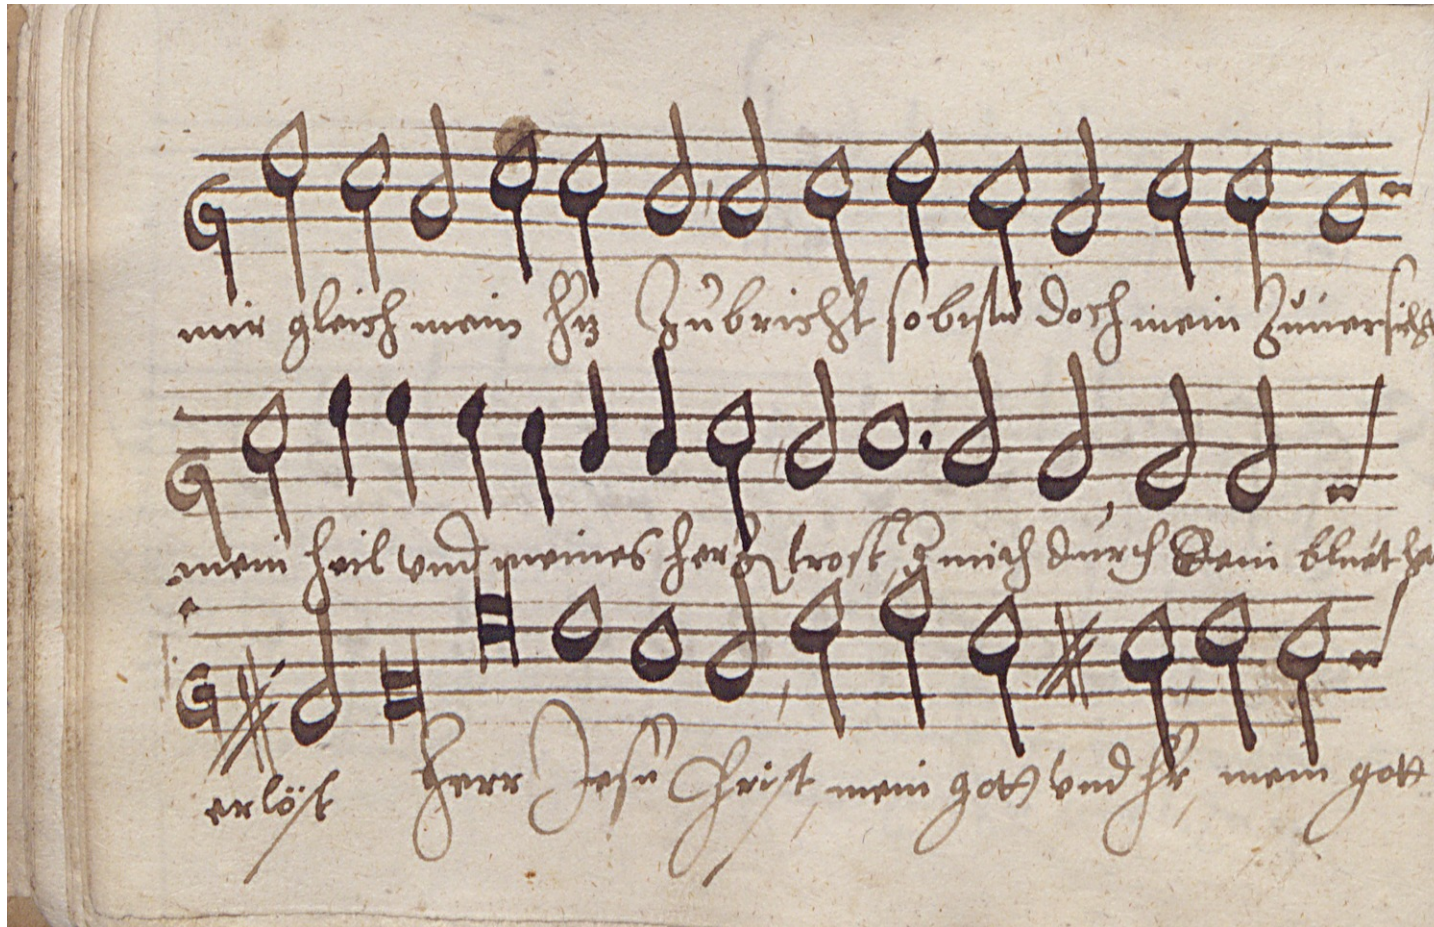 mir gleich mein Hꝫ Zůbricht so bistu doch mein Zůuersicht
mein heil vnd meines hertzẽ trost, mich durch Sein bluet
erlöst herr Jesu Christ, mein gott vnd hr, mein gott